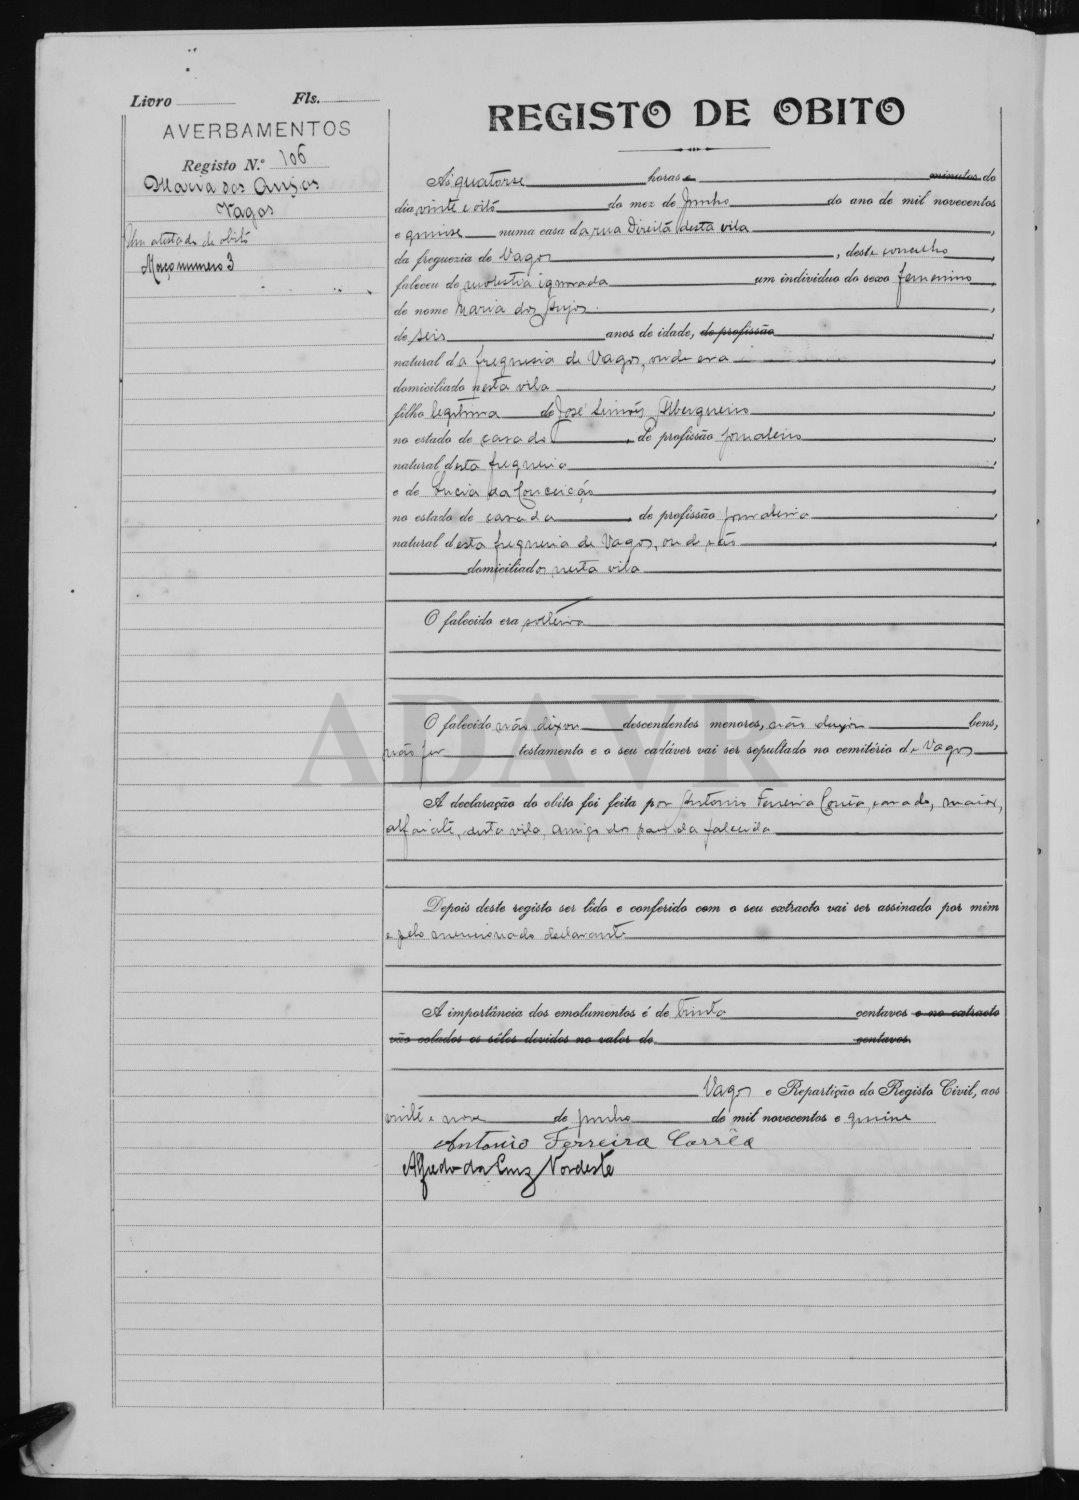 Livro Fls.
AVERBAMENTOS
Registo N.º 106
Maria dos Anjos
Vagos
Um atestado de obito
Maço numero 3
REGISTO DE OBITO
Ás quatorse horas e minutos do
dia vinte e oito do mez de Junho do ano de mil novecentos
e quinse numa casa da rua Direita desta vila,
da freguezia de Vagos, deste concelho,
faleceu de molestia ignorada um individuo do sexo femenino,
de nome Maria dos Anjos,
de seis anos de idade, de profissão
natural da freguesia de Vagos, onde era
domiciliado nesta vila,
filho legitima de José Simões Albergueiro,
no estado de casado, de profissão jornaleiro,
natural desta freguesia
e de Lucia da Conceição,
no estado de casada, de profissão jornaleira,
natural desta freguesia de Vagos, onde são
domiciliados nesta vila
O falecido era solteira
O falecido não deixou descendentes menores, não deixou bens,
não fez testamento e o seu cadáver vai ser sepultado no cemitério de Vagos
A declaração do obito foi feita por Antonio Ferreira Corrêa, casado, maior,
alfaiate, desta vila, amigo dos paes da falecida
Depois deste registo ser lido e conferido com o seu extracto vai ser assinado por mim
e pelo mencionado declarante
A importância dos emolumentos é de trinta centavos e no extracto
vão colados os sêlos devidos no valor de centavos.
Vagos e Repartição do Registo Civil, aos
vinte e nove de junho de mil novecentos e quinse
Antonio Ferreira Corrêa
Alfredo da Cruz Nordeste
ADAVR